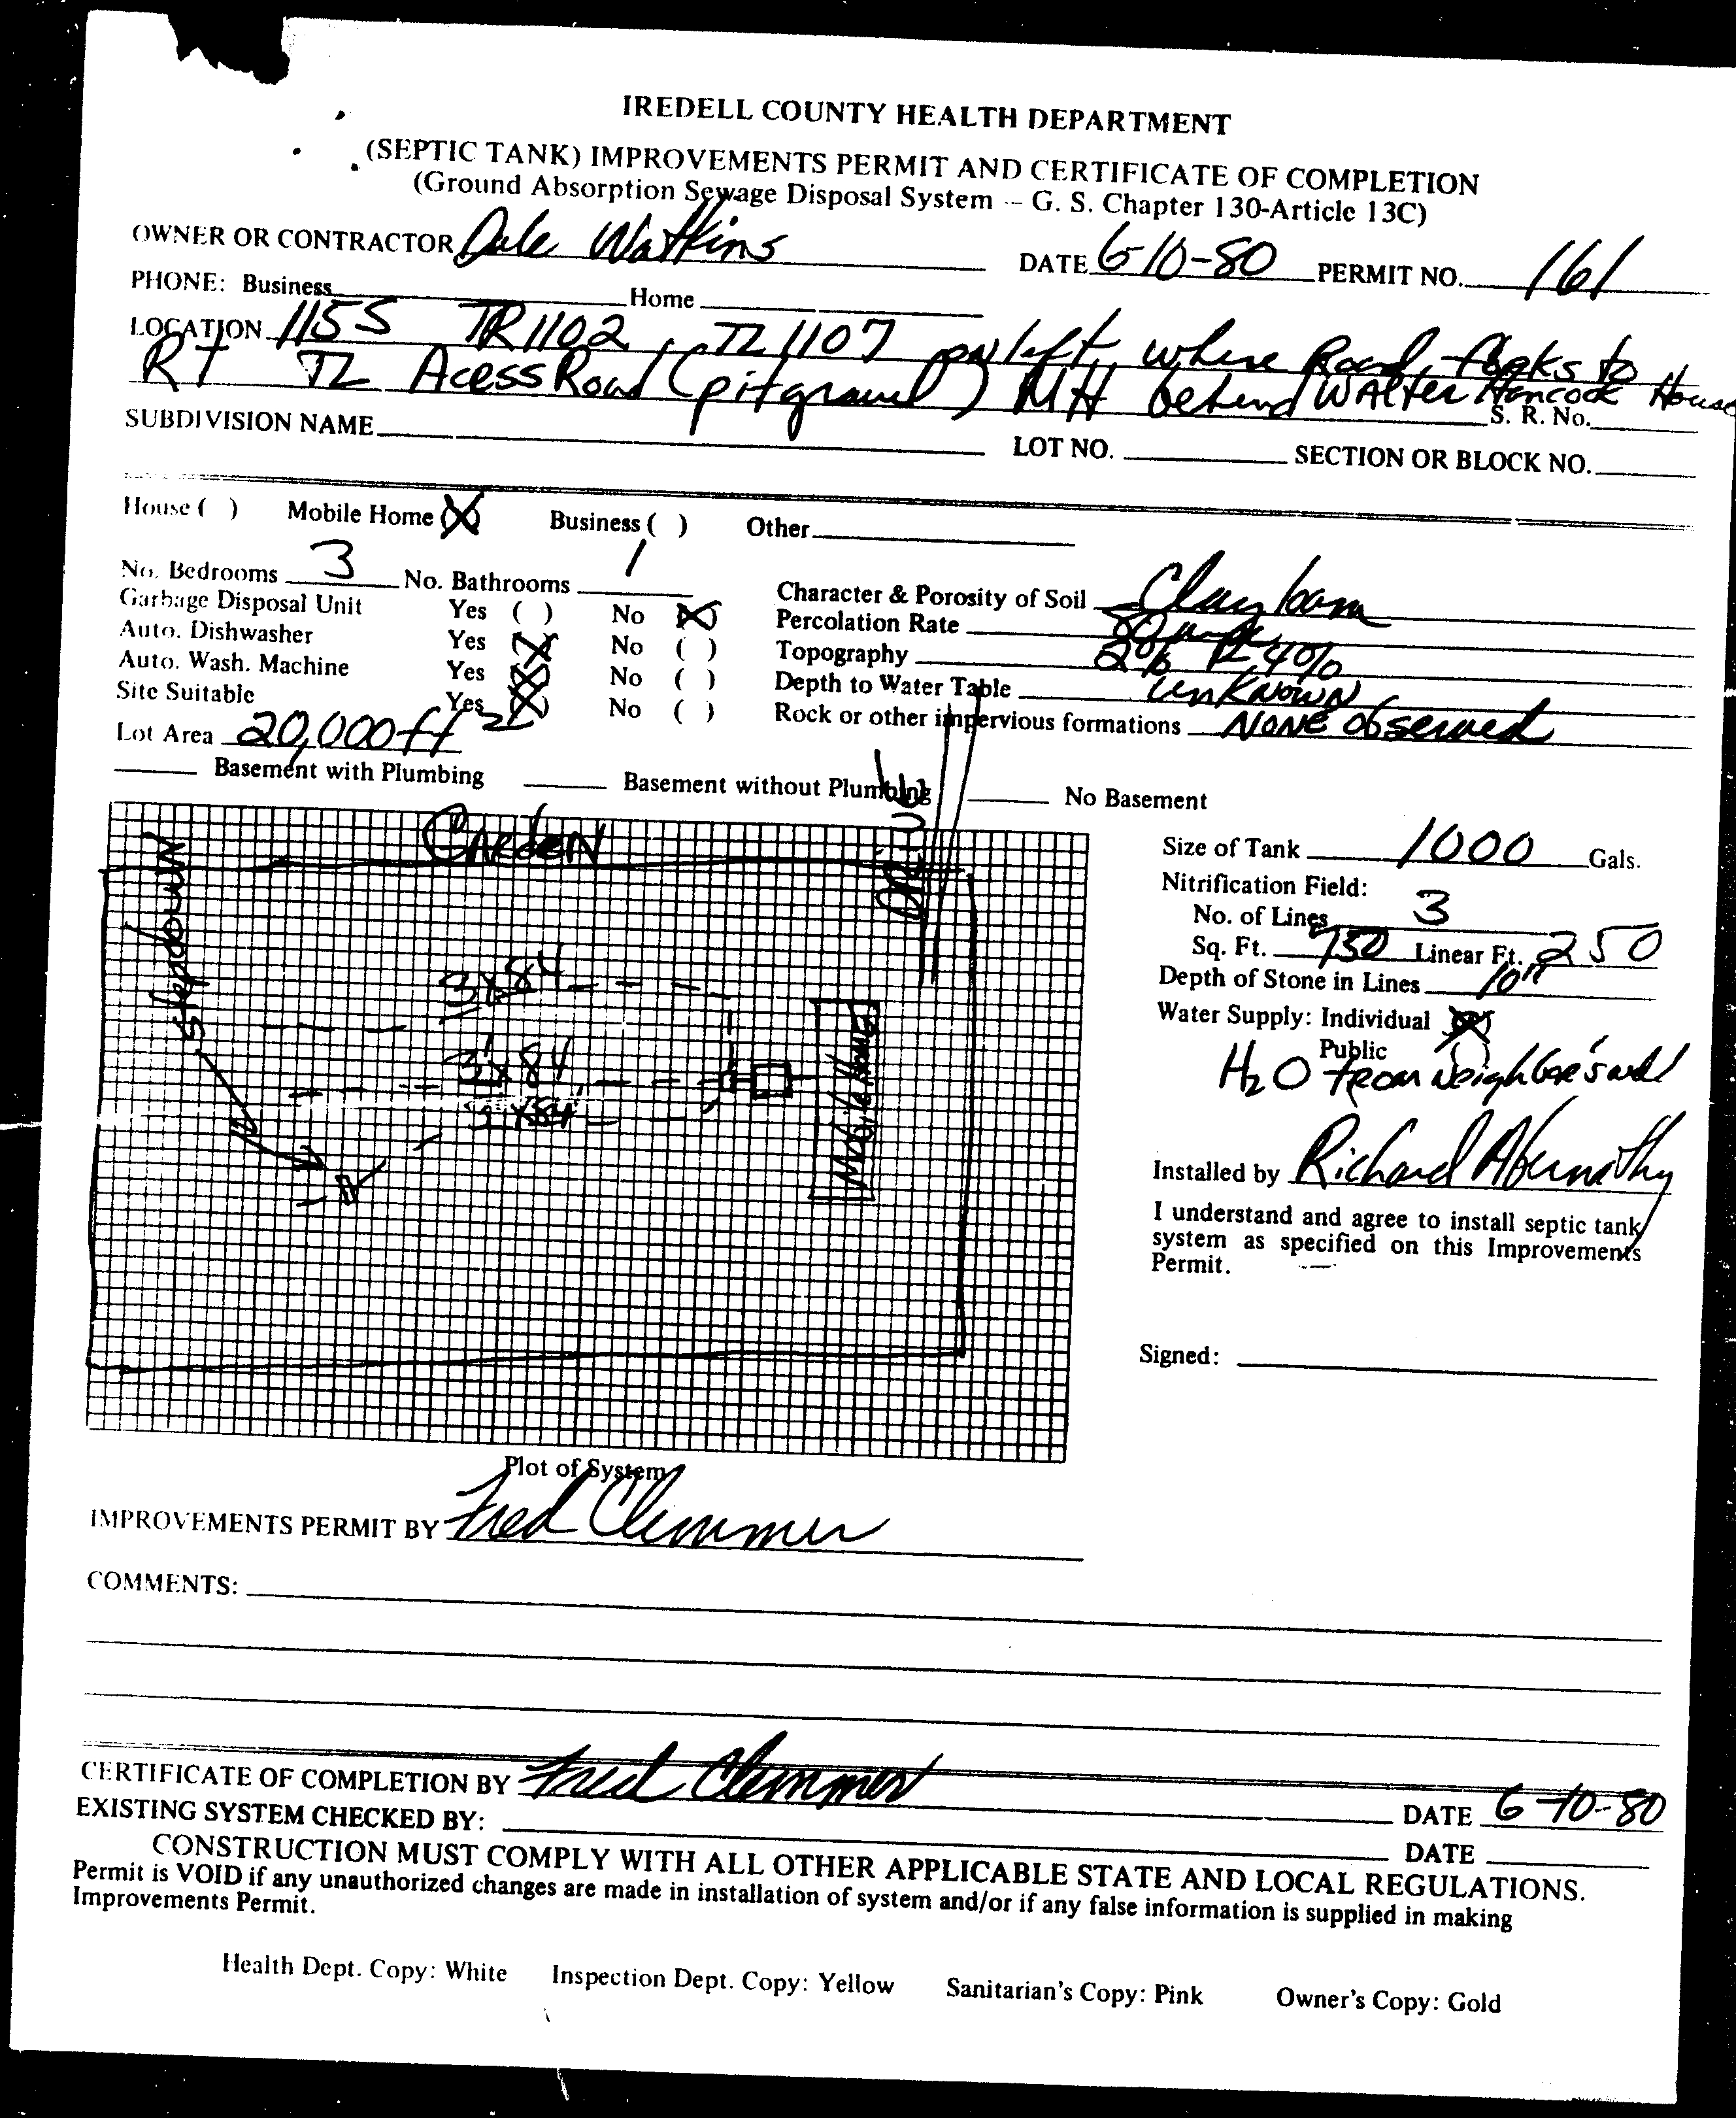 IREDELL COUNTY HEALTH DEPARTMENT
(SEPTIC TANK) IMPROVEMENTS PERMIT AND CERTIFICATE OF COMPLETION
(Ground Absorption Sewage Disposal System -- G. S. Chapter 130-Article 13C)
OWNER OR CONTRACTOR Dale Watkins DATE 6-10-80 PERMIT NO. 161
PHONE: Business Home
LOCATION 115 S TR 1102, TL 1107 on left where Road forks to
RT TL Acess Road (pit gravel) MH behind Walter Hancock House
S. R. No.
SUBDIVISION NAME LOT NO. SECTION OR BLOCK NO.
House ( ) Mobile Home (X) Business ( ) Other
No. Bedrooms 3 No. Bathrooms 1 Character & Porosity of Soil Clay loam
Garbage Disposal Unit Yes ( ) No (X) Percolation Rate 80
Auto. Dishwasher Yes (X) No ( ) Topography 2% 4%
Auto. Wash. Machine Yes (X) No ( ) Depth to Water Table Unknown
Site Suitable Yes (X) No ( ) Rock or other impervious formations NONE Observed
Lot Area 20,000 ft 2
Basement with Plumbing Basement without Plumbing No Basement
Garden
Drive
Stepdown
3x84
3'x84
3x84'
Mobile Home
Size of Tank 1000 Gals.
Nitrification Field:
No. of Lines 3
Sq. Ft. 750 Linear Ft. 250
Depth of Stone in Lines 10"
Water Supply: Individual (X)
Public ( )
H2O from Neighbor's well
Installed by Richard Abernathy
I understand and agree to install septic tank
system as specified on this Improvements
Permit.
Signed:
Plot of System
IMPROVEMENTS PERMIT BY Fred Clemmer
COMMENTS:
CERTIFICATE OF COMPLETION BY Fred Clemmer DATE 6-10-80
EXISTING SYSTEM CHECKED BY: DATE
CONSTRUCTION MUST COMPLY WITH ALL OTHER APPLICABLE STATE AND LOCAL REGULATIONS.
Permit is VOID if any unauthorized changes are made in installation of system and/or if any false information is supplied in making
Improvements Permit.
Health Dept. Copy: White Inspection Dept. Copy: Yellow Sanitarian's Copy: Pink Owner's Copy: Gold